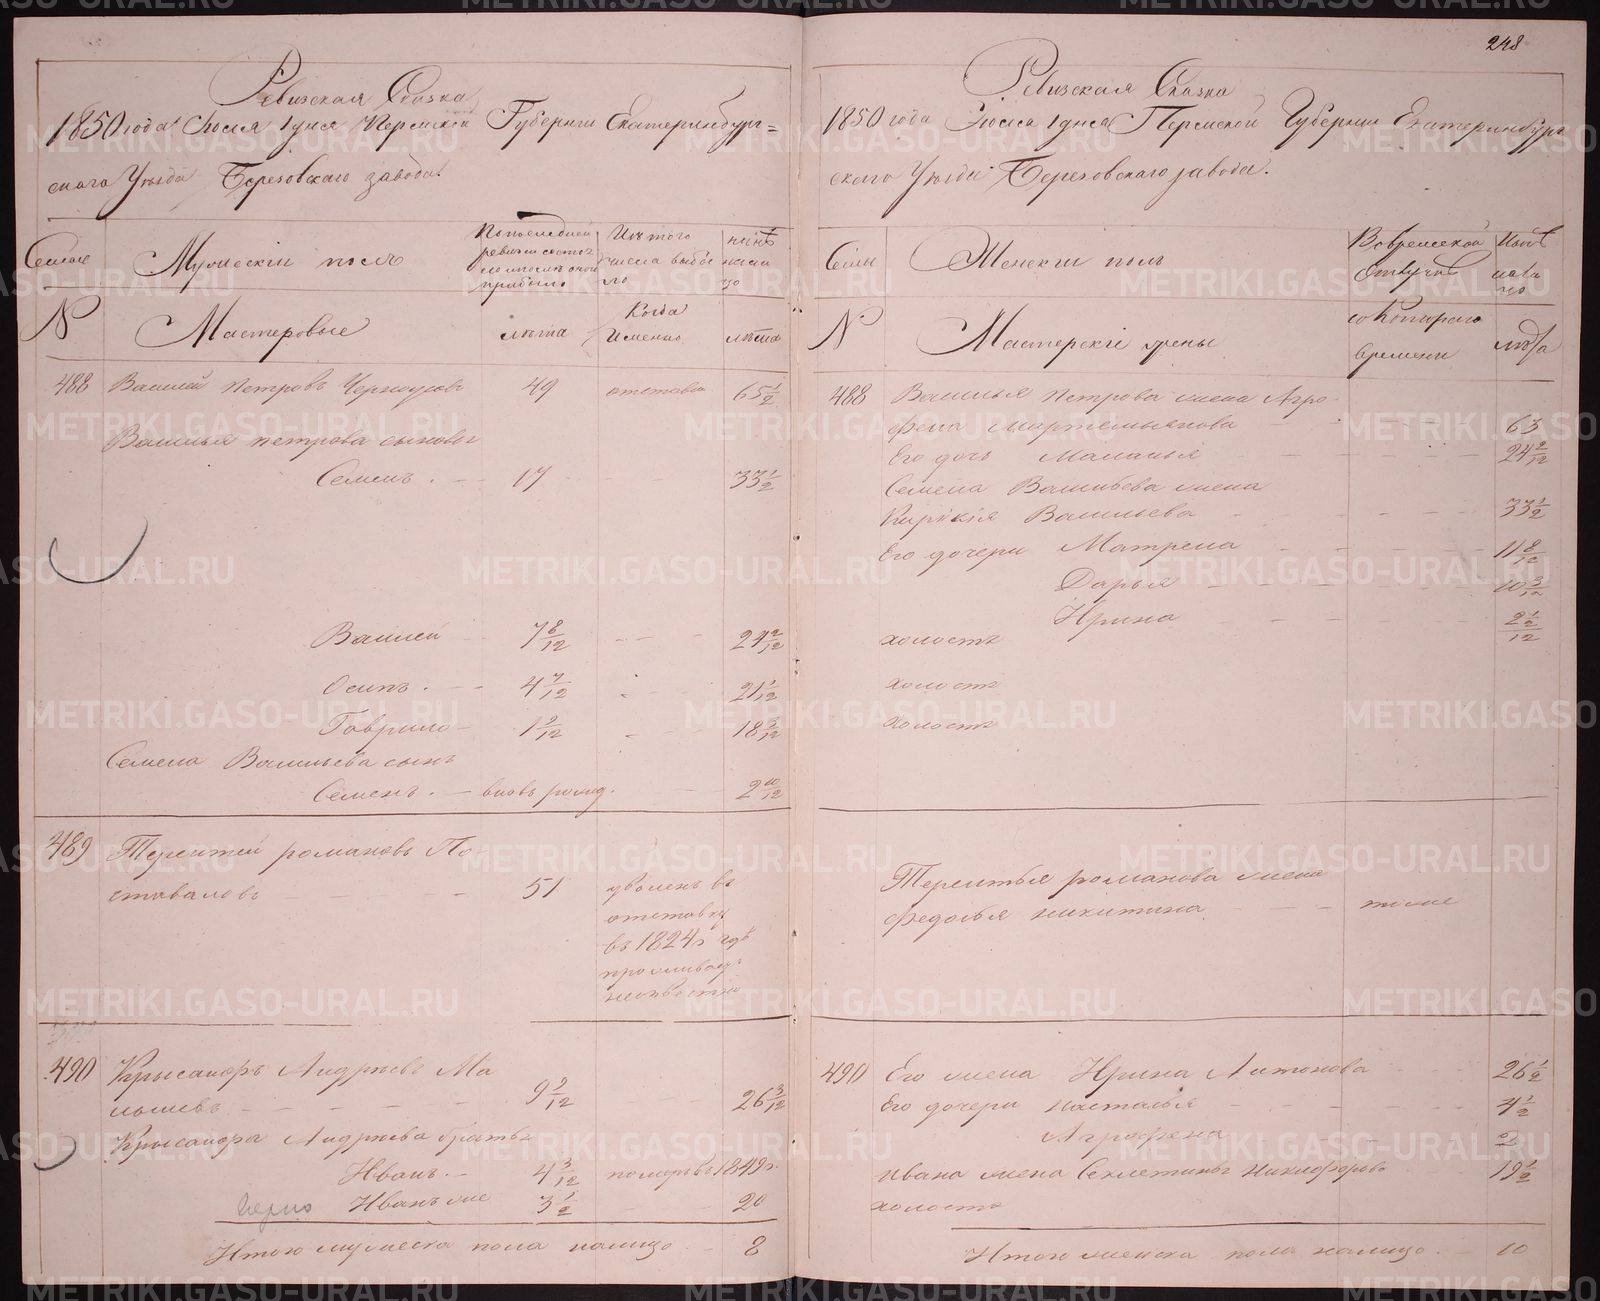 248
Ревизская Сказка
1850 года Июля 1 дня Пермской Губернии Екатеринбург=
скаго Уезда Березовскаго завода.
Семьи
Мужескiй полъ
По последней
ревизiи состо
прибыло
Изъ того
числа выбы
ло
ныне
нали
цо
N
Мастеровые
лета
Когда
Именно
лета
488 Василей Петровъ Черноусовъ 49 отставн 65 1/2
Василья петрова сыновья
Семенъ . 17 33 1/2
Василей 7 8/12 24 2/12
Осипъ . 4 7/12 21 1/12
Гаврило 1 9/12 18 3/12
Семена Васильева сынъ
Семенъ . вновь рожд. 2 10/12
489 Терентей романовъ По
ставаловъ 51 уволенъ въ
отставку
въ 1824 г. где
проживаетъ
неизвестно
490 Крысанфъ Андреевъ Ма
лышевъ 9 9/12 26 3/12
Крысанфа Андреева братья
Иванъ. 4 3/12 померъ въ 1849 г.
Иванъ же 3 1/2 20
Итого мужеска пола налицо 8
Ревизская Сказка
1850 года Июля 1 дня Пермской Губернии Екатеринбург
скаго Уезда Березовскаго завода.
Семьи
Женскiй полъ
Во временной
отлучке
нали
цо
N
Мастерскiе жены
съ котораго
времени
лета
488 Василья Петрова жена Агро
фена Мартемьянова 63
Его дочь Маланья 24 2/12
Семена Васильева жена
Кирикiя Васильева 33 1/2
Его дочери Матрена 11 8/12
Дарья 10 3/12
Ирина
холостъ
холостъ
холостъ
Терентья романова жена
Федосья никитина тоже
490 Его жена Ирина Антонова 26 1/2
Его дочери настасья 4 1/2
Агрофена 2
Ивана жена Секлетинья Никифорова 19 1/2
холостъ
Итого женска пола налицо. 10
METRIKI.GASO-URAL.RU